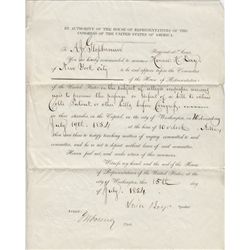 BY AUTHORITY OF THE HOUSE OF REPRESENTATIVES OF THE
CONGRESS OF THE UNITED STATES OF AMERICA.
To A. J. Glossbrenner Sergeant-at-Arms,
You are hereby commanded to summon Horace H. Day of
New York City
to be and appear before the Committee
of the House of Representatives
of the United States, on the subject of alleged
used to procure the passage or defeat of a bill to extend
Colts Patent or other bills before Congress
in their chamber, in the Capitol, in the city of Washington, on Wednesday
July 19th, 1854, at the hour of 10 o'clock A.M.
then and there to testify touching matters of inquiry committed to said committee;
and he is not to depart without leave of said committee.
Herein fail not, and make return of this summons.
Witness my hand and the seal of the House
of Representatives of the United States, at the
city of Washington, this 15th day of
July, 1854
Linn Boyd Speaker
Attest:
Clerk.